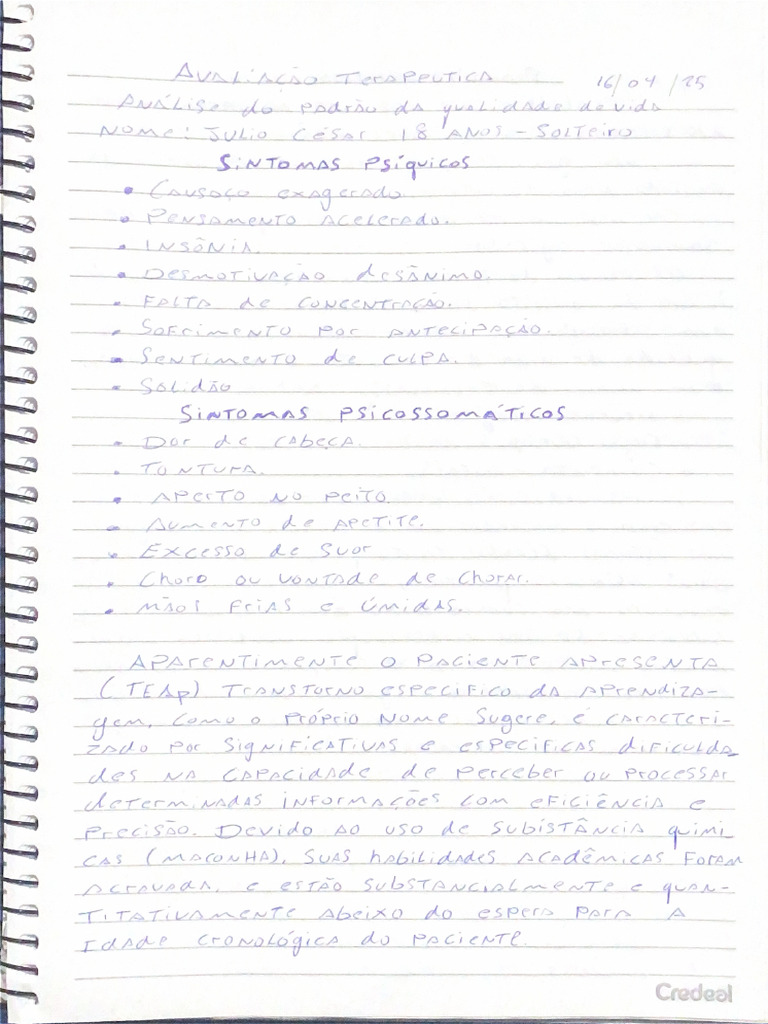 Avaliação Terapeutica 16/04/25
Análise do padrão da qualidade de vida
Nome: Julio César 18 anos - Solteiro
Sintomas Psíquicos
• Causaço exagerado
• Pensamento acelerado.
• Insônia.
• Desmotivação desânimo.
• Falta de concentração.
• Sofrimento por antecipação.
• Sentimento de culpa.
• Solidão
Sintomas Psicossomáticos
• Dor de cabeça.
• Tontura.
• Aperto no peito.
• Aumento de apetite.
• Excesso de suor
• Choro ou vontade de chorar.
• Mãos frias e úmidas.
Aparentimente o paciente apresenta
(TEAp) Transtorno especifico da aprendiza-
gem, como o próprio nome sugere, é caracteri-
zado por significativas e especificas dificulda
des na capacidade de perceber ou processar
determinadas informações com eficiência e
precisão. Devido ao uso de subistância quimi-
cas (maconha), suas habilidades acadêmicas foram
agravada, e estão substancialmente e quan-
titativamente abeixo do espera para a
idade cronológica do paciente.
Credeal